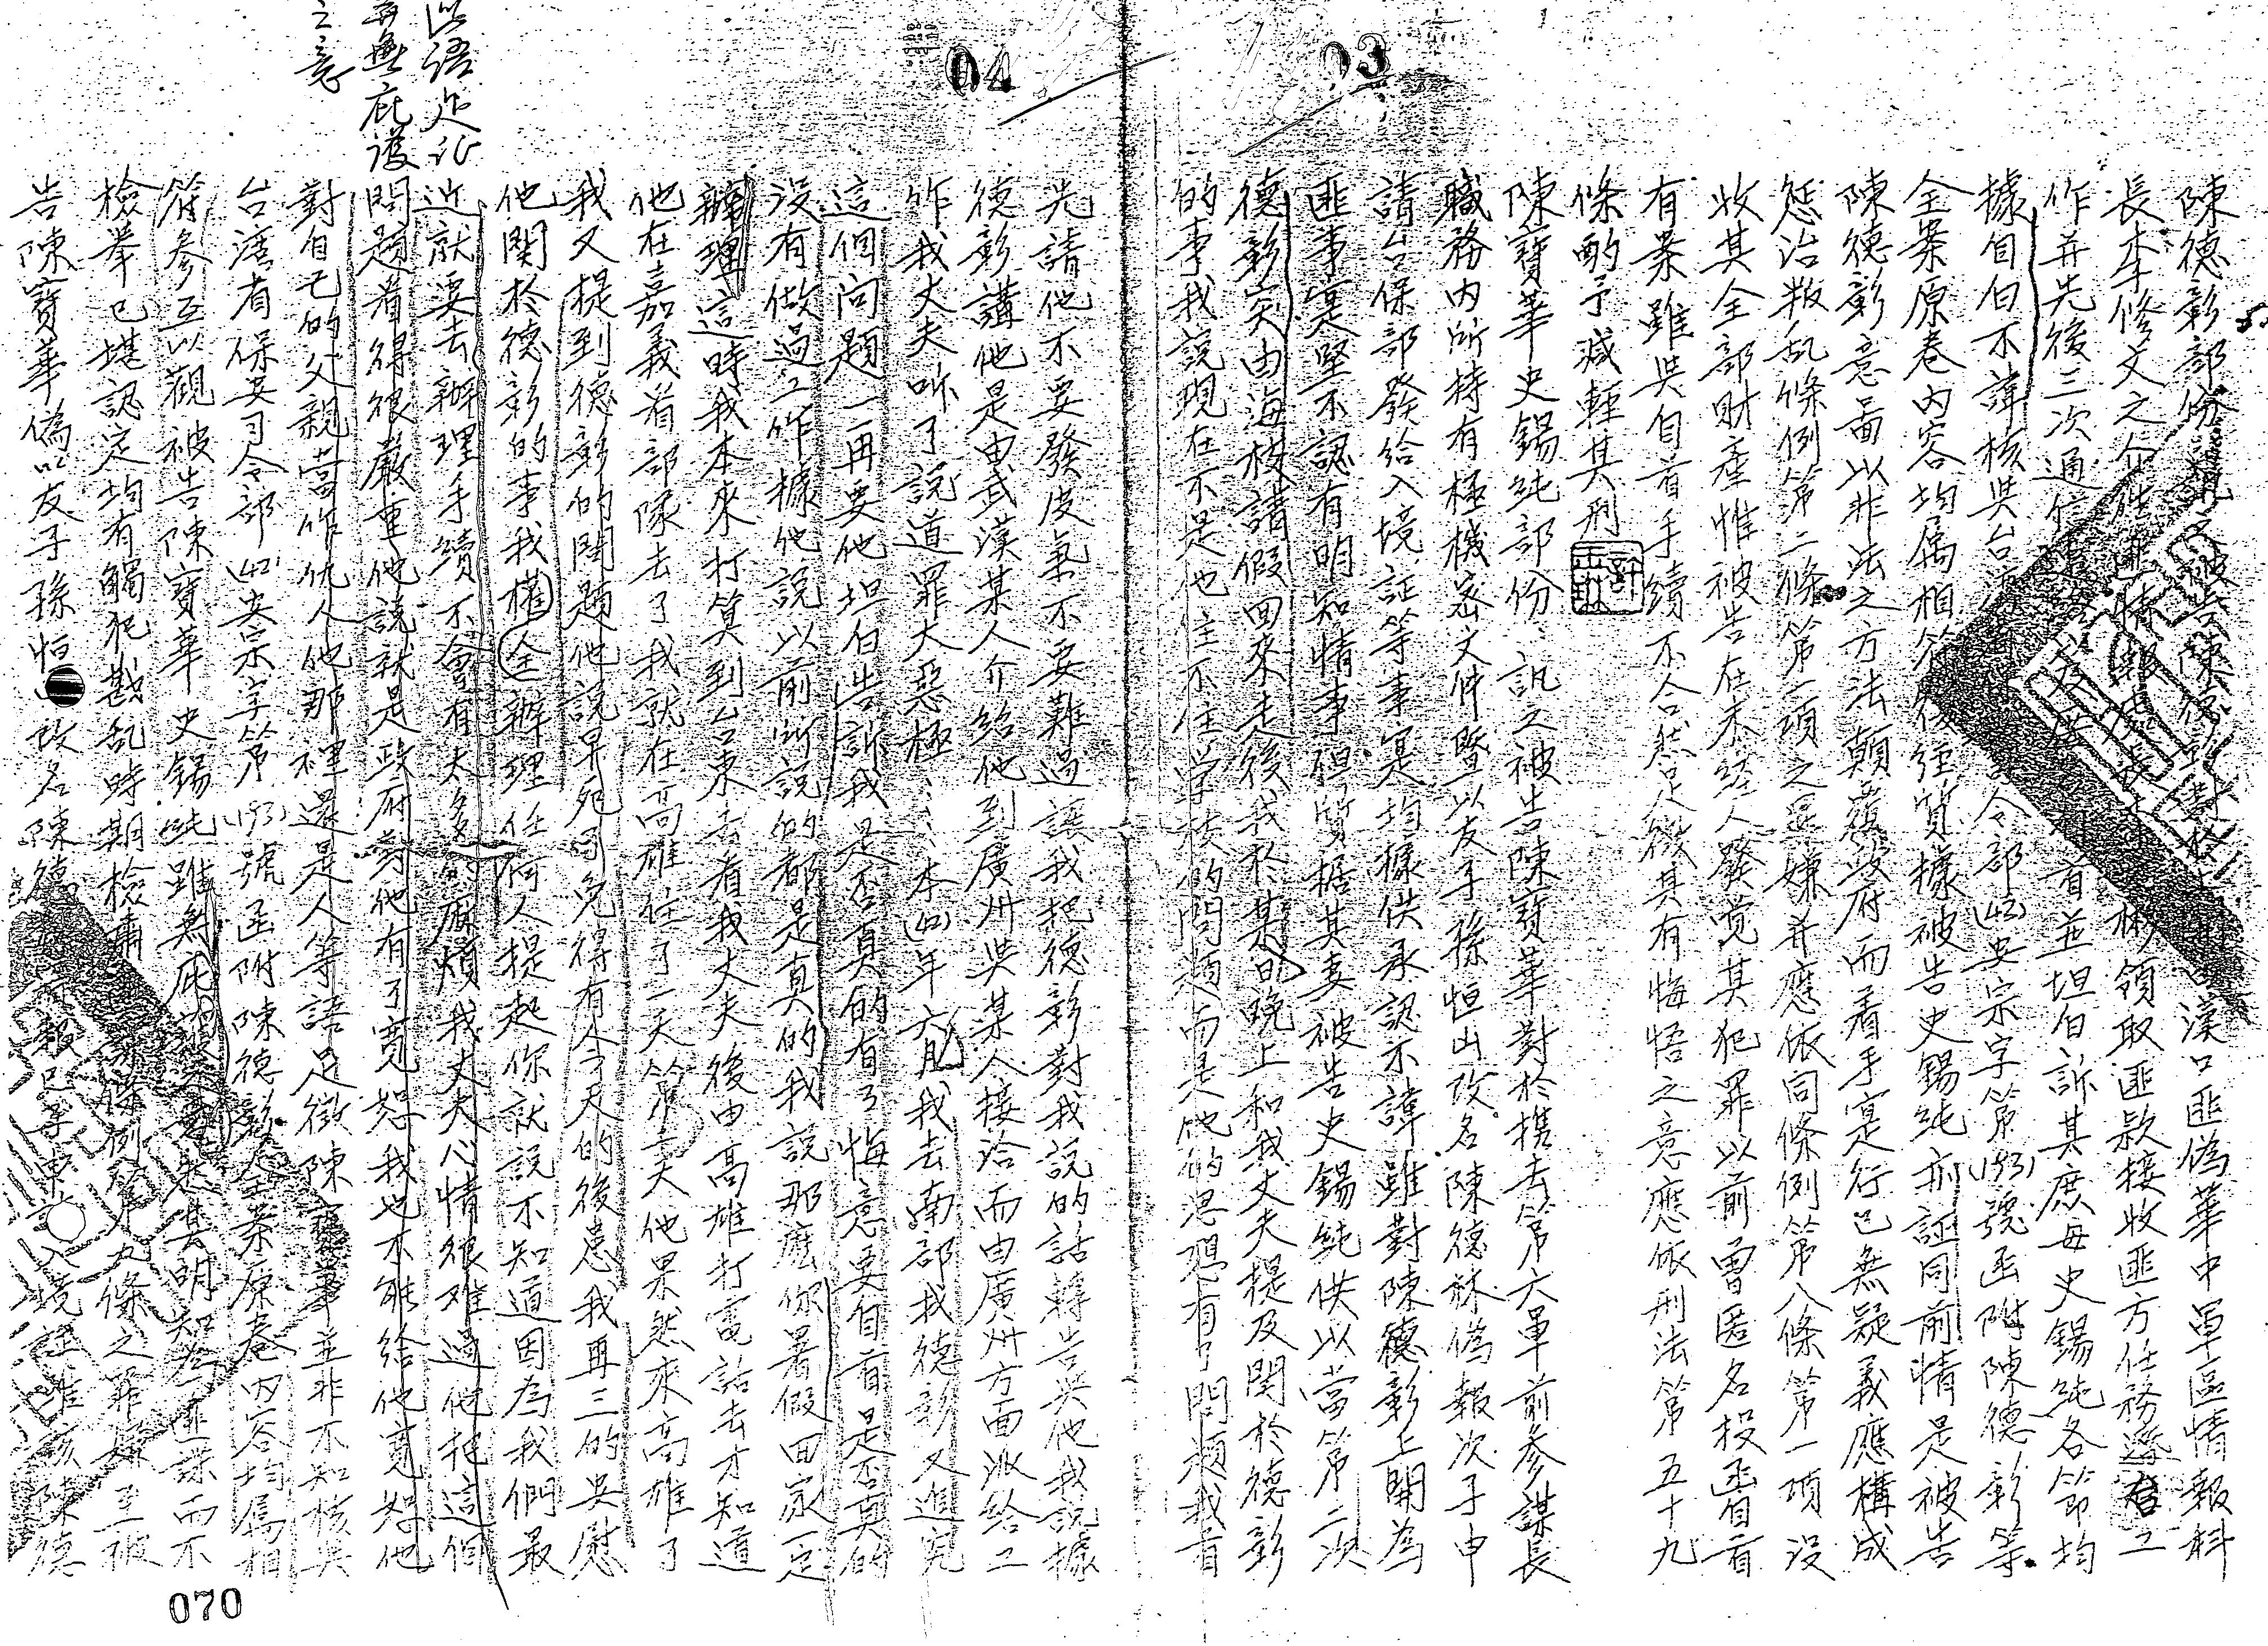 03
陳德彰部份：被告陳德彰對於漢口匪偽華中軍區情報科
長李修文之介紹匪情報領取匪款接收匪方任務從事工
作并先後三次通信自首並坦白訴其庶母史錫純各節均
據自白不諱核與台灣省保安司令部(42)安宗字第(193)號函附陳德彰等
全案原卷內容均屬相符後經質據被告史錫純亦証同前情是被告
陳德彰意圖以非法之方法顛覆政府而着手寔行已無疑義應構成
懲治叛乱條例第二條第一項之罪嫌并應依同條例第八條第一項沒
收其全部財產惟被告在未經人發覺其犯罪以前曾匿名投函自首
有案雖與自首手續不合然足徵其有悔悟之意應依刑法第五十九
條酌予減輕其刑
陳寶華史錫純部份：訊之被告陳寶華對於携去第六軍前參謀長
職務內所持有極機密文件暨以友子孫恒山改名陳德林偽報次子申
請台保部發給入境証等事寔均據供承認不諱雖對陳德彰上開為
匪事寔堅不認有明知情事但質据其妻被告史錫純供以當第二次
德彰突由海校請假回來走後我於某日晚上和我丈夫提及関於德彰
的事我說現在不是他住不住学校的問題而是他的思想有了問題我首
04
先請他不要發皮氣不要難過讓我把德彰對我說的話轉告與他我說據
德彰講他是由武漢某人介紹他到廣州與某人接洽而由廣州方面派給工
作我丈夫听了說道罪大惡極……本(42)年六月我去南部找德彰又追究
這個问題一再要他坦白告訴我是否真的有了悔意要自首是否真的
没有做過工作據他說以前所說的都是真的我說那麽你暑假回家一定
辦理這時我本來打算到台東去看我丈夫後由高雄打電話去才知道
他在嘉義看部隊去了我就在高雄住了一天第二天他果然來高雄了
我又提到德彰的問題他說早死司免得有今天的後患我再三的安慰
他関於德彰的事我權全辦理任何人提起你就說不知道因為我們最
近就要去辦理手續不會有太多的麻煩我丈夫心情很难過他把這個
問題看得很嚴重他說就是政府對他有了寬恕我也不能給他寬恕他
對自己的父親當作仇人他那裡還是人等語足徵陳寶華並非不知核與
台湾省保安司令部(42)安宗字第(193)號函附陳德彰全案原卷内容均屬相
符参互以觀被告陳寶華史錫純雖無庇護之意然其明知為匪諜而不
檢举已堪認定均有觸犯戡乱時期檢肅匪諜條例第九條之罪嫌至被
告陳寶華偽以友子孫恒山改名陳德林報已子申請入境証唯該陳德
此語足訟
並無庇護
之意
070